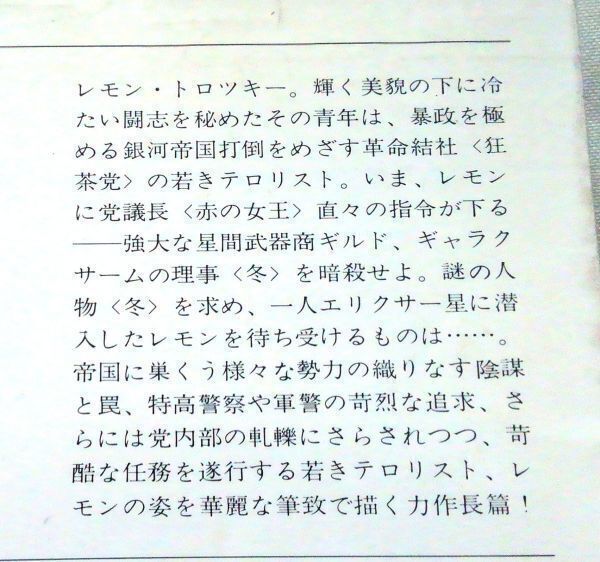 レモン・トロツキー。輝く美貌の下に冷
たい闘志を秘めたその青年は、暴政を極
める銀河帝国打倒をめざす革命結社〈狂
茶党〉の若きテロリスト。いま、レモン
に党議長〈赤の女王〉直々の指令が下る
――強大な星間武器商ギルド、ギャラク
サームの理事〈冬〉を暗殺せよ。謎の人
物〈冬〉を求め、一人エリクサー星に潜
入したレモンを待ち受けるものは……。
帝国に巣くう様々な勢力の織りなす陰謀
と罠、特高警察や軍警の苛烈な追求、さ
らには党内部の軋轢にさらされつつ、苛
酷な任務を遂行する若きテロリスト、レ
モンの姿を華麗な筆致で描く力作長篇！